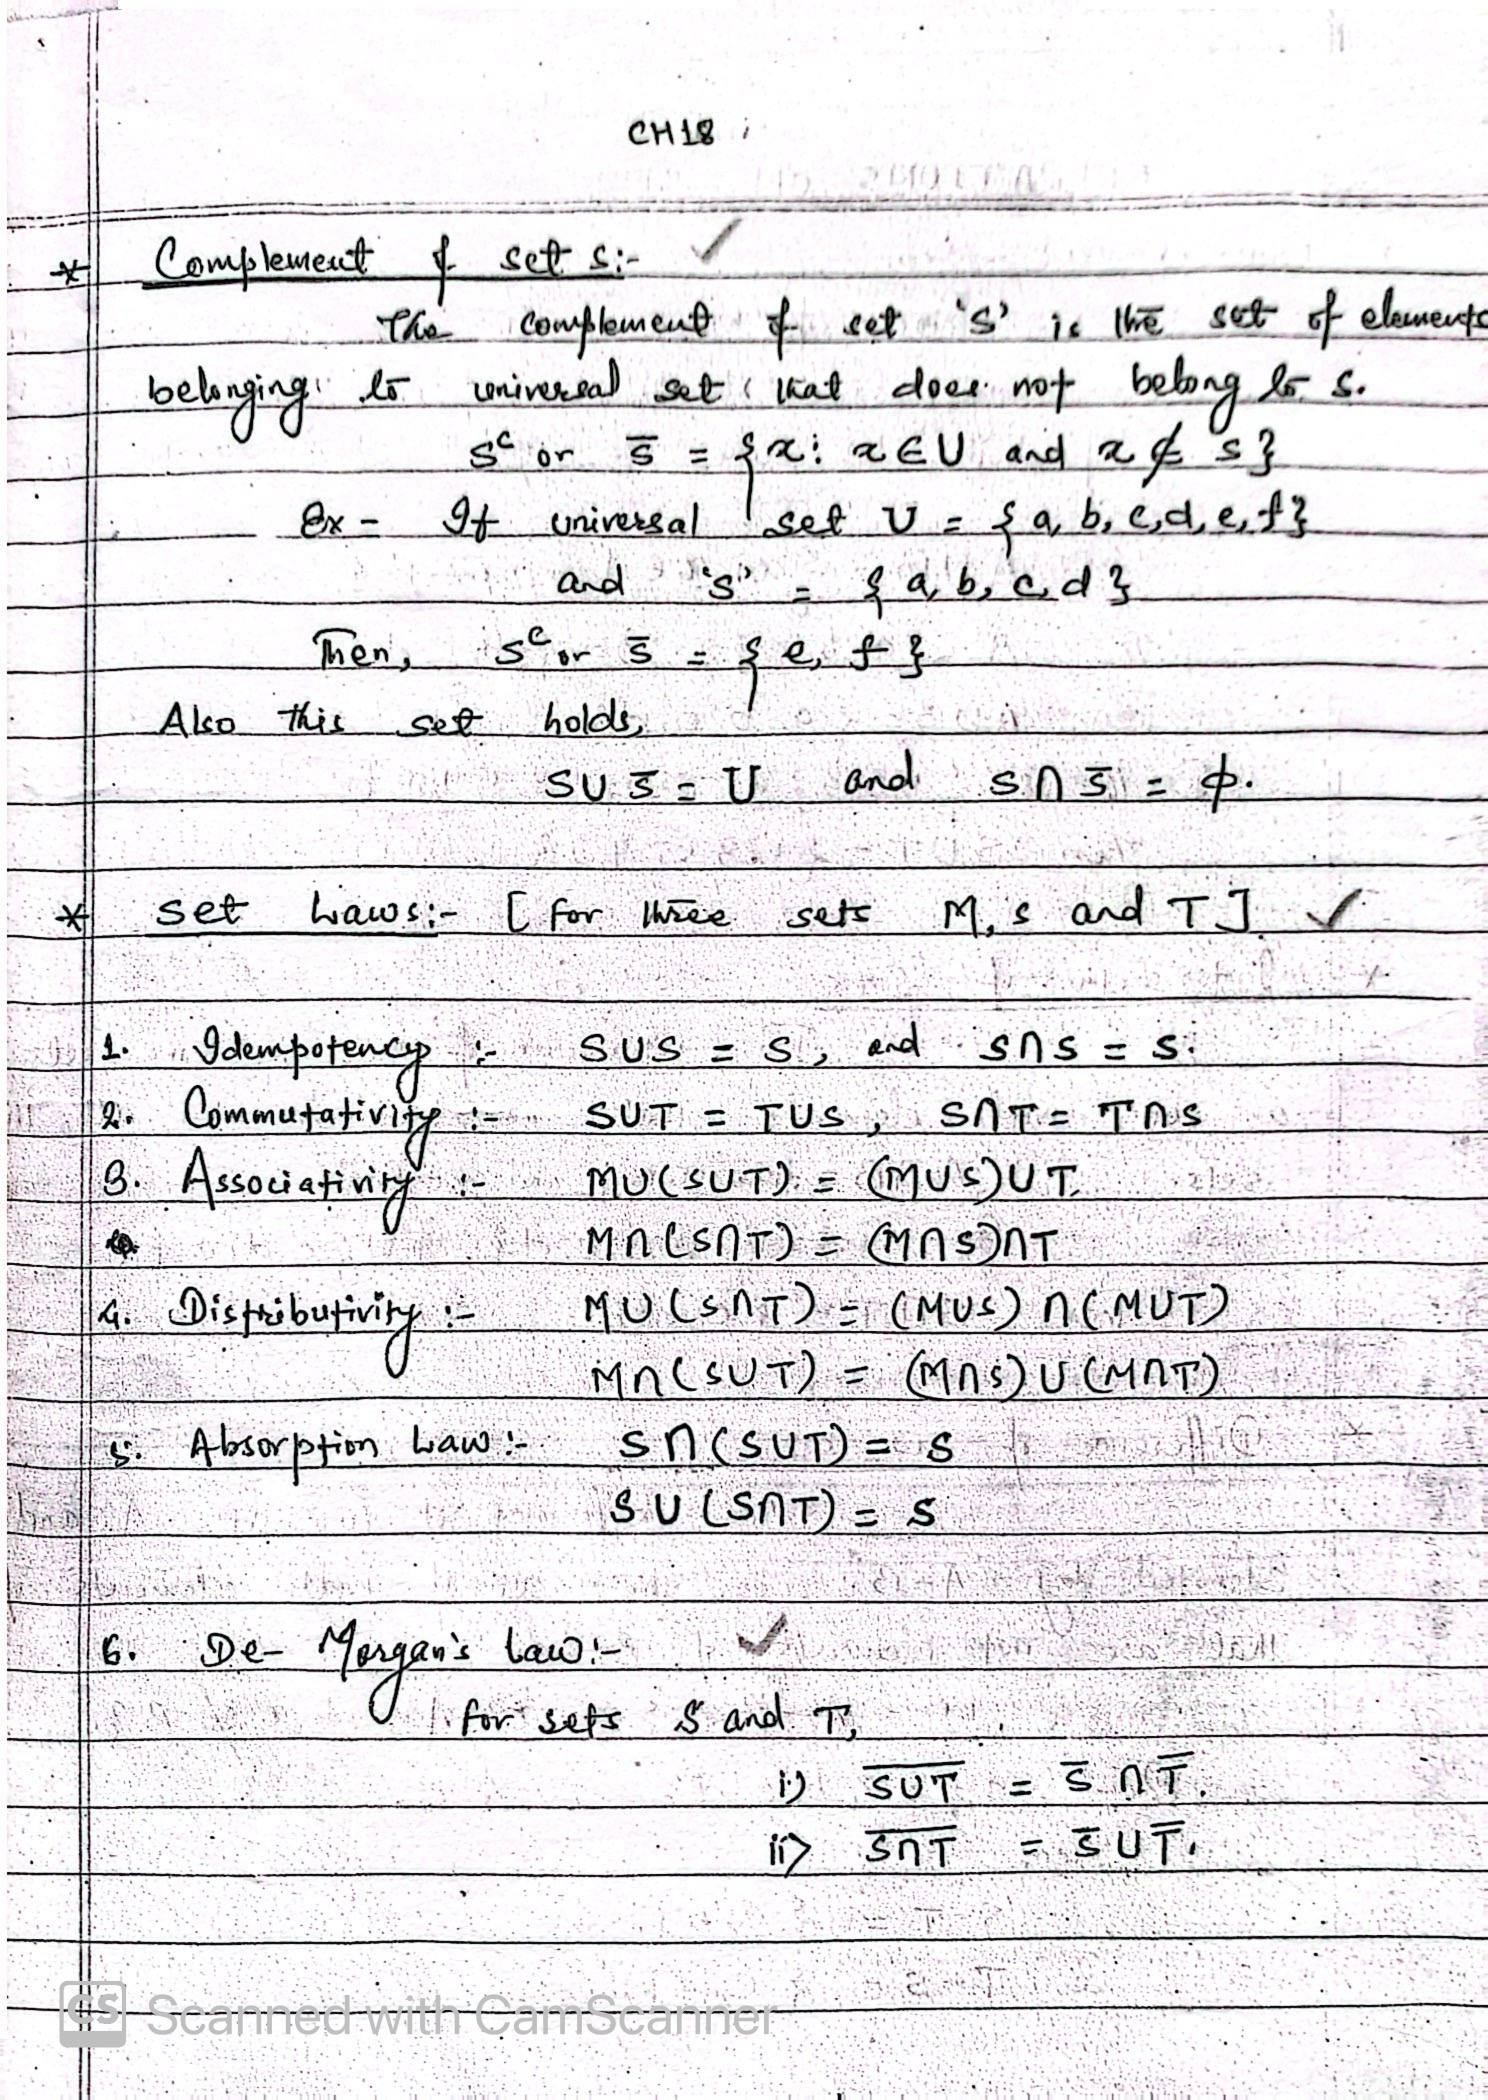 CH 18
* Complement of set S:- ✓
The complement of set 'S' is the set of elements
belonging to universal set that does not belong to S.
Sᶜ or S̅ = {x: x ∈ U and x ∉ S}
Ex - If universal set U = {a, b, c, d, e, f}
and 'S' = {a, b, c, d}
Then, Sᶜ or S̅ = {e, f}
Also this set holds,
S ∪ S̅ = U and S ∩ S̅ = ϕ.
* Set Laws:- [For three sets M, S and T] ✓
1. Idempotency :- S∪S = S, and S∩S = S.
2. Commutativity :- S∪T = T∪S, S∩T = T∩S
3. Associativity :- M∪(S∪T) = (M∪S)∪T
M∩(S∩T) = (M∩S)∩T
4. Distributivity :- M∪(S∩T) = (M∪S)∩(M∪T)
M∩(S∪T) = (M∩S)∪(M∩T)
5. Absorption Law :- S∩(S∪T) = S
S∪(S∩T) = S
6. De-Morgan's Law:- ✓
For sets S and T,
i) S̅∪̅T̅ = S̅ ∩ T̅.
ii) S̅∩̅T̅ = S̅ ∪ T̅.
CS Scanned with CamScanner